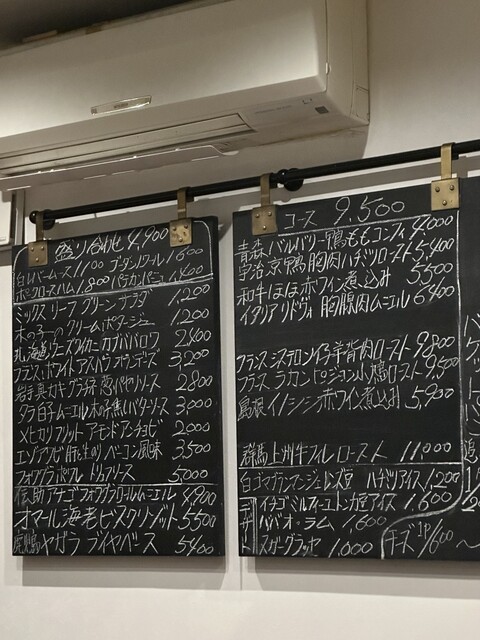 盛り合わせ 4,900
白レバームース 1100 ゴーダ 1,600
ボンレスハム 1,800 パテカンパーニュ 1,400
ミックスリーフ グリーンサラダ 1,200
木の子のクリームポタージュ 1,200
北海道 カニカブババロワ 2400
フランス ホワイトアスパラ オランデーズ 3,200
岩手真カキグラチネ 2800
タラ白子ムニエル 木の子焦がしバターソース 3,000
メヒカリフリット アーモンドアンチョビ 2000
ベーコン風味 3500
フォアグラポワレ トリュフソース 5,000
アナゴフォアグラロールムニエル 4,900
オマール海老ビスクリゾット 5500
鹿児島 ヤガラ ブイヤベース 5400
コース 9,500
青森 バルバリー鴨ももコンフィ 4,000
宇治 京鴨 胸肉ハチミツロースト 5,400
和牛ほほ赤ワイン煮込み 5500
イタリア リドヴォ 胸腺肉ムニエル 6400
フランス シストロン仔羊背肉ロースト 9,800
フランス ラカン ピジョン 小鳩ロースト 9,500
島根 イノシシ赤ワイン煮込み 5,900
群馬上州牛フィレロースト 11,000
白ゴマブランマンジェ ハチミツアイス 1,200
イチゴミルフィーユ アイス 1,600
ババ・オ・ラム 1,600
1,000
チーズ 1P/600 〜